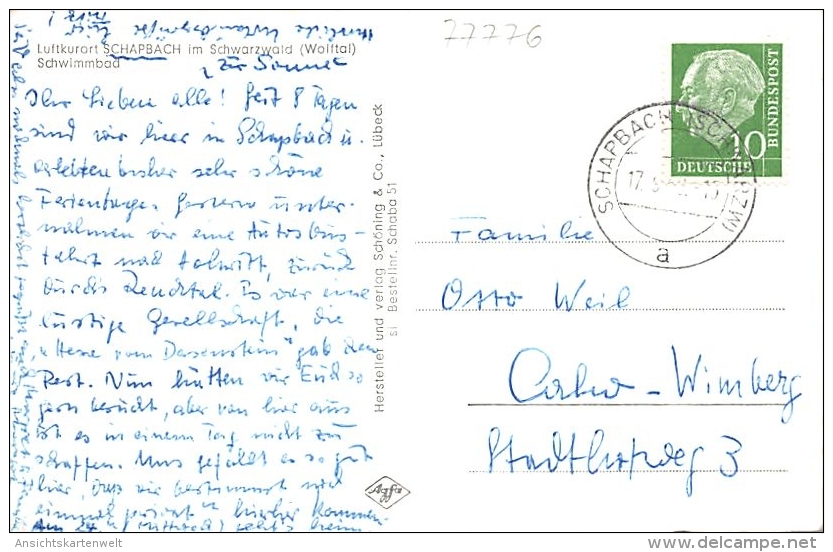 Herzliche
77776
Luftkurort SCHAPBACH im Schwarzwald (Wolftal)
Schwimmbad
"Zur Sonne"
Ihr Lieben alle! Seit 8 Tagen
sind wir hier in Schapbach u.
erlebten bisher sehr schöne
Ferientage. Gestern unter-
nahmen wir eine Autobus-
fahrt nach zurück
durchs Renchtal. Es war eine
lustige Gesellschaft, die
"Hexe vom Dasenstein" gab den
Rest. Nun hätten wir Euch so
gern besucht, aber von hier aus
ist es in einem Tag nicht zu
schaffen. Uns gefällt es so gut
hier, dass wir bestimmt noch
einmal privat hierher kommen.
Am 24. (Mittwoch) geht's heim
Hersteller und Verlag Schöning & Co., Lübeck
SI Bestellnr. Schaba 51
Agfa
10
DEUTSCHE
BUNDESPOST
SCHAPBACH (SCHWARZW)
17.
a
Familie
Otto Weil
Calw-Wimberg
Stadthofweg 3
Ansichtskartenwelt
http://www.delcampe.net